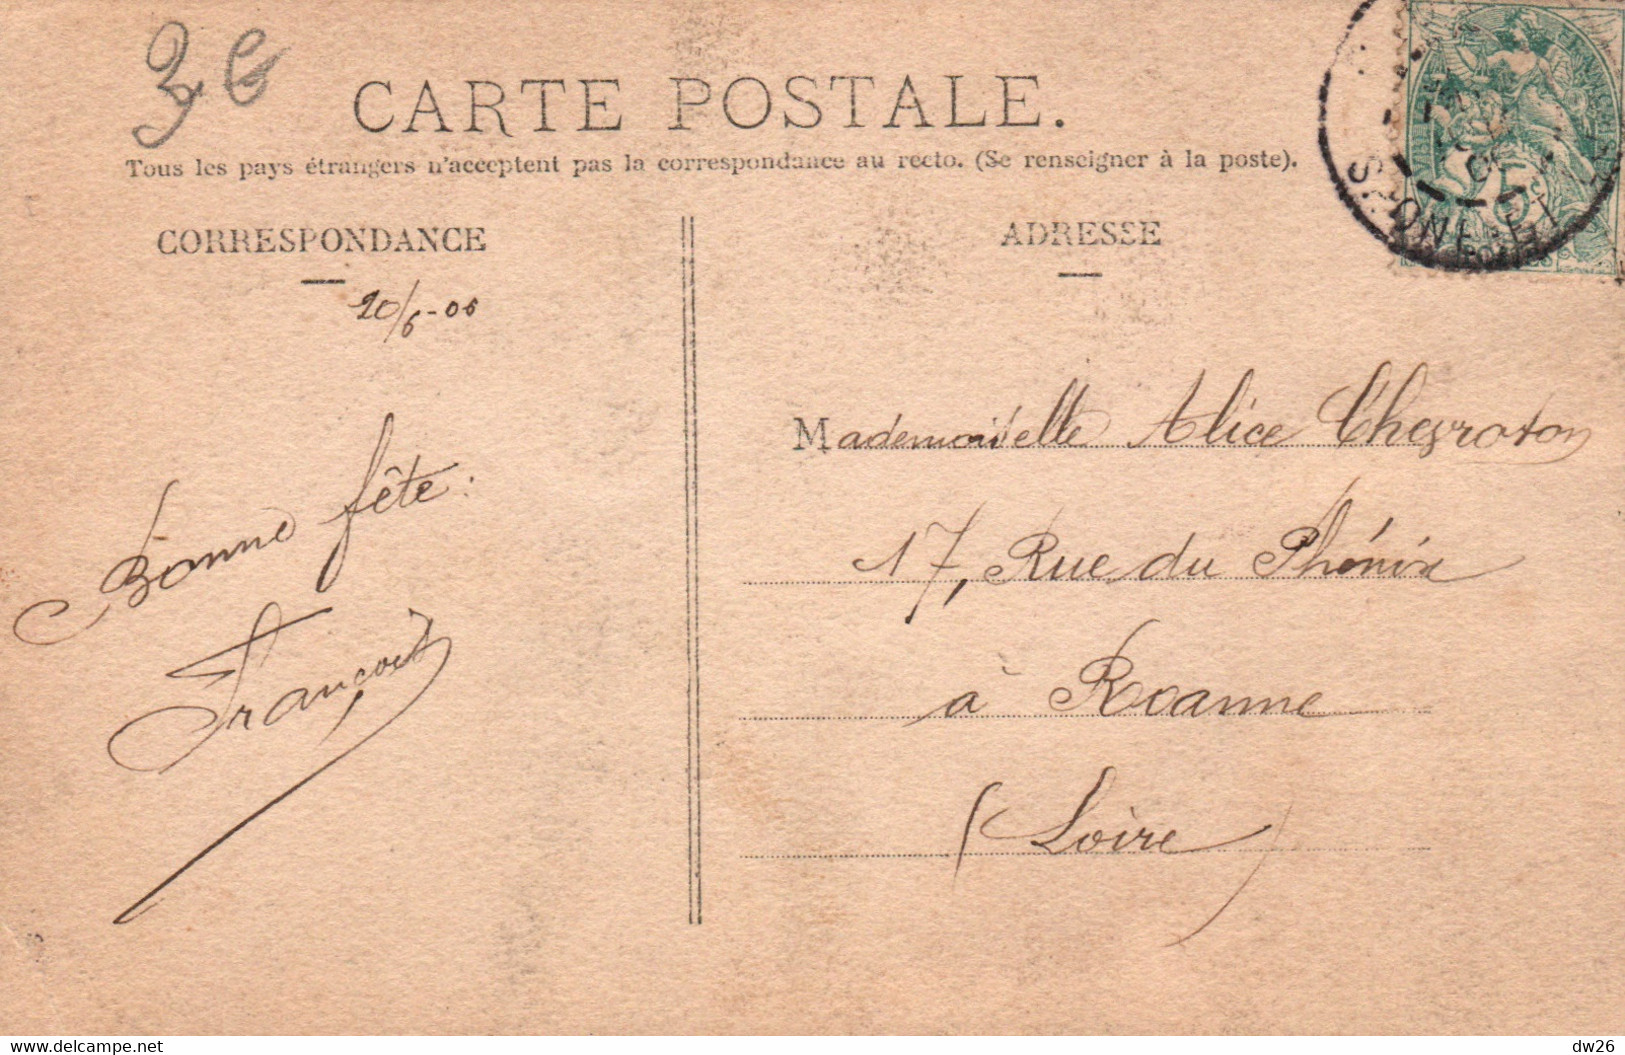 3€
CARTE POSTALE.
Tous les pays étrangers n'acceptent pas la correspondance au recto. (Se renseigner à la poste).
CORRESPONDANCE
ADRESSE
20/6-06
Bonne fête.
François
Mademoiselle Alice Chevroton
17, Rue du Phénix
à Roanne
(Loire)
SAONE-ET-L
5
http://www.delcampe.net
dw26